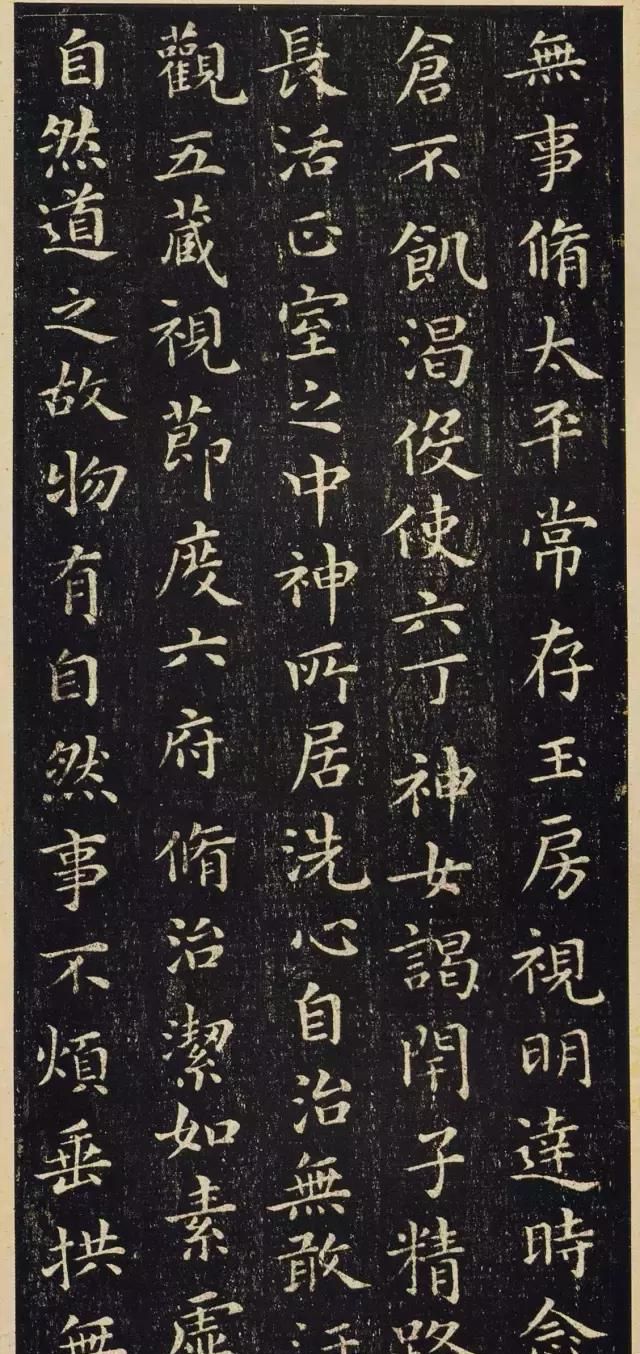 無事脩太平常存玉房視明達時念
倉不飢渴伇使六丁神女謁閇子精路
長活正室之中神所居洗心自治無敢
觀五藏視莭度六府脩治潔如素虛
自然道之故物有自然事不煩垂拱無